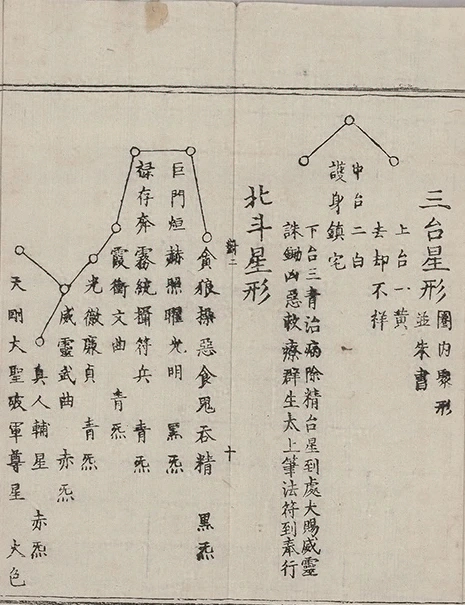 三台星形 圈内聚形
並朱書
上台一黄
去却不祥
中台二白
護身鎮宅
下台三青治病除精台星到處大賜威靈
誅鋤凶惡救療群生太上筆法符到奉行
北斗星形
十
貪狼操惡食鬼吞精 黑炁
巨門烜赫照曜光明 黑炁
祿存奔霧統攝符兵 青炁
霞衝文曲 青炁
光微廉貞 青炁
威靈武曲 赤炁
真人輔星 赤炁
天剛大聖破軍尊星 火色